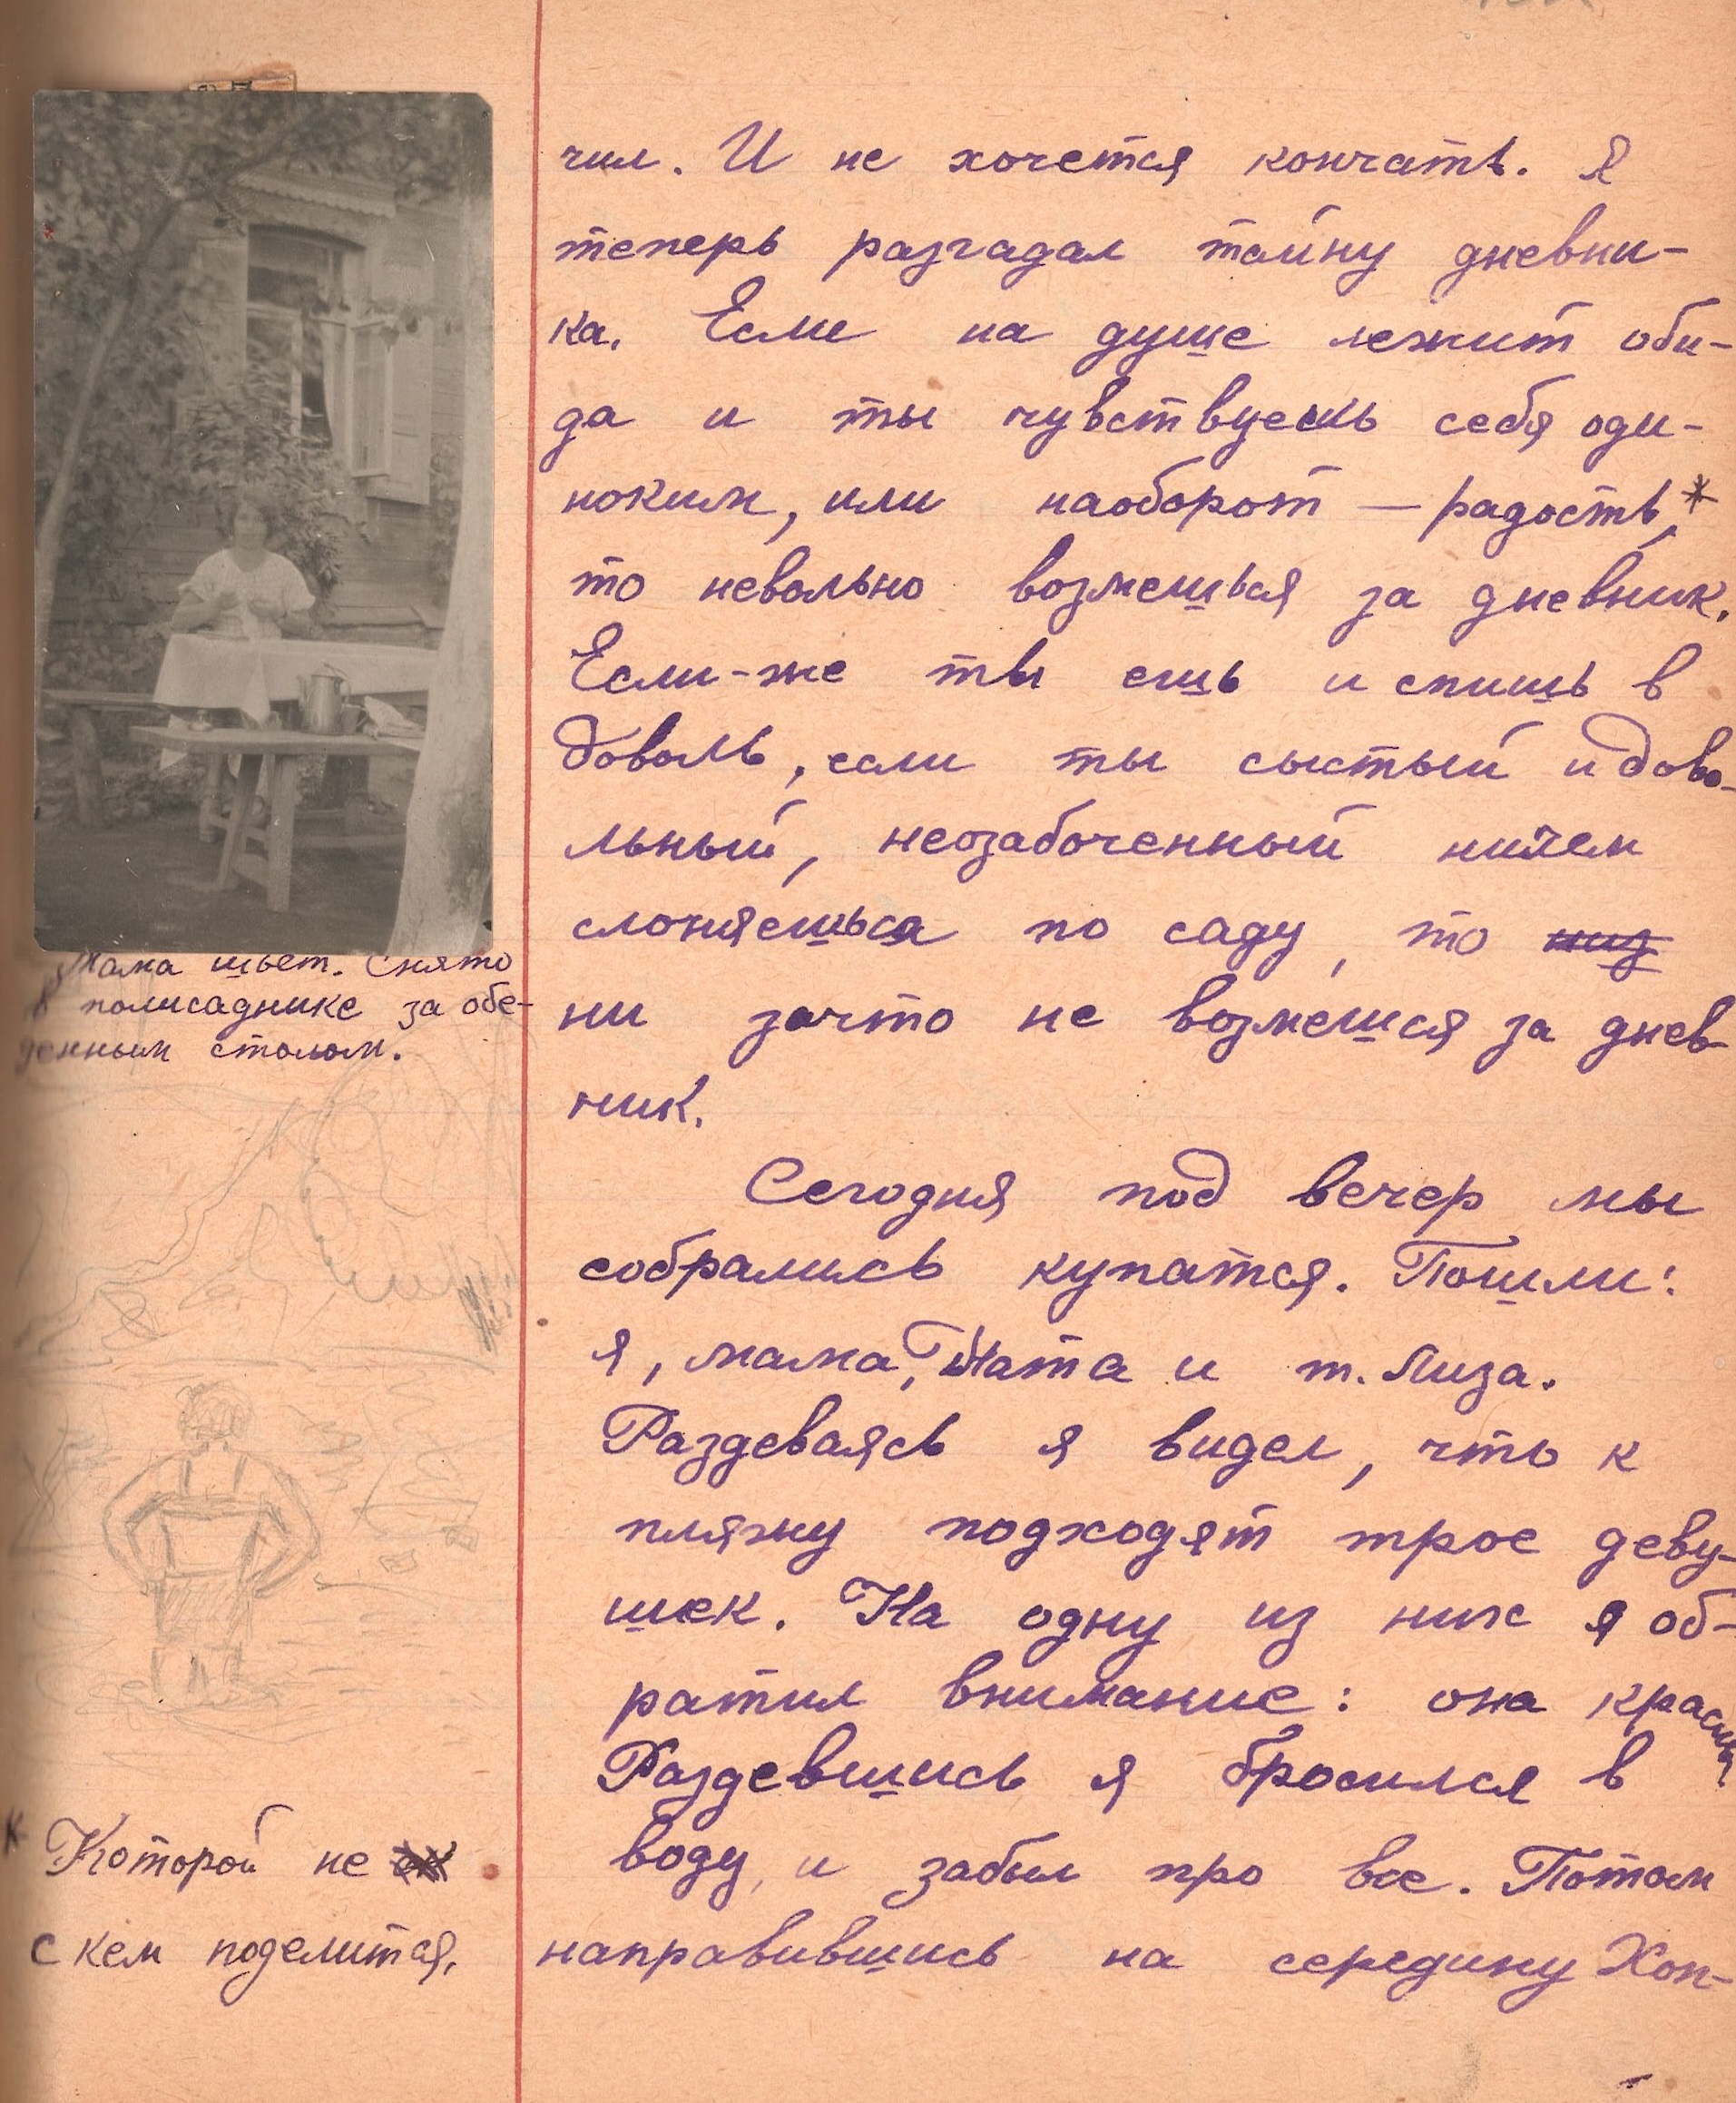 чил. И не хочется кончать. Я
теперь разгадал тайну дневни-
ка. Если на душе лежит оби-
да и ты чувствуешь себя оди-
ноким, или наоборот — радость,*
то невольно возмешься за дневник.
Если-же ты ешь и спишь в
доволь, если ты сыстый и дово-
льный, неозабоченный ничем
слоняешься по саду, то низ
ни зачто не возмешся за днев-
ник.
Сегодня под вечер мы
собрались купатся. Пошли:
я, мама, Тата и т. Лиза.
Раздеваясь я видел, что к
пляжу подходят трое деву-
шек. На одну из них я об-
ратил внимание: она красива
Раздевшись я бросился в
воду, и забыл про все. Потом
направившись на середину Хоп-
Мама шьет. Снято
в полисаднике за обе-
денным столом.
* Которой не
с кем поделится.